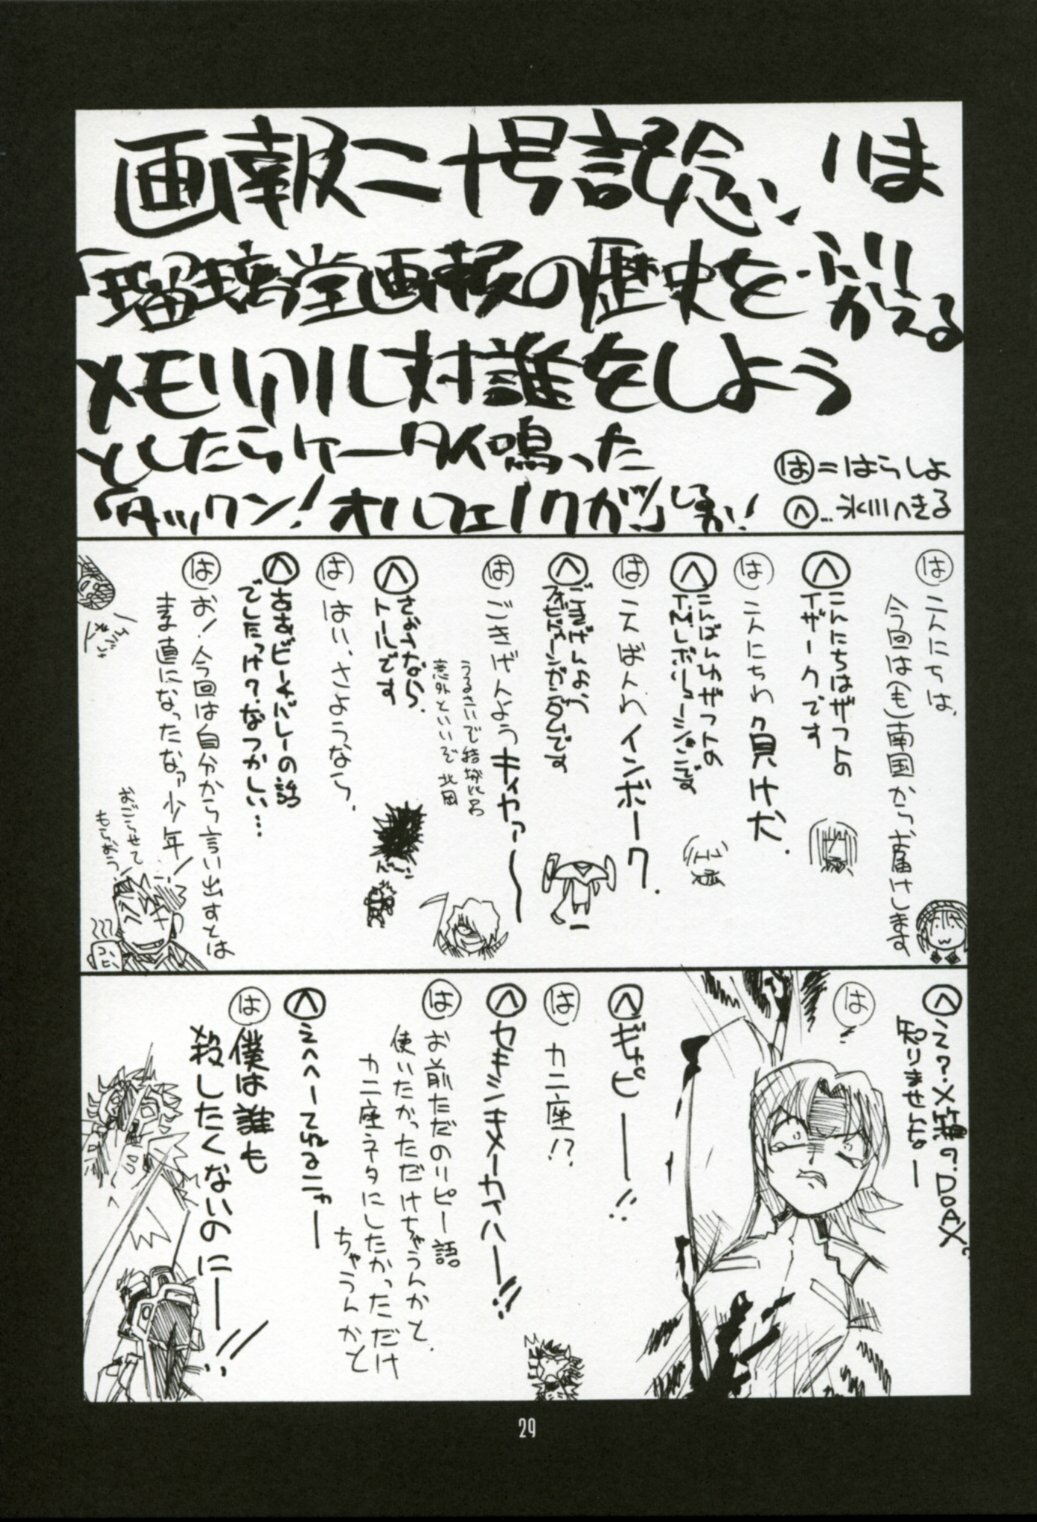 画報二十号記念、
「瑠璃堂画報の歴史を
ふりかえる
メモリアル対談をしよう
としたらケータイ鳴った
タックン!オルフェノクが
は=はらしよ
へ…氷川へきる
は 今回は(も)南国からお届けします
へ こんにちはザフトの
イザークです
は こんにちわ負け犬.
へ こんばんはザフトの
は こんばんわインボーク.
へ ごきげんよう
は ごきげんようキィヤァ〜
うるさいで
意外といいで 北岡
へ さようなら、
トールです
は はい、さようなら、
へ ああビーチバレーの話
でしたっけ?なつかしい…
は お!今回は自分から言い出すとは
素直になったなァ少年!
おごらせて
もらおう
へ え?×箱の.DOAX?
知りませんなー
は !
へ ギャピーー!!
は カニ座!?
へ セキシキメーカイハー!!
は お前ただのリピー語
使いたかっただけちゃうんかと.
カニ座ネタにしたかっただけ
ちゃうんかと
へ えへへーてるニャー
は 僕は誰も
殺したくないのにーー!!
29